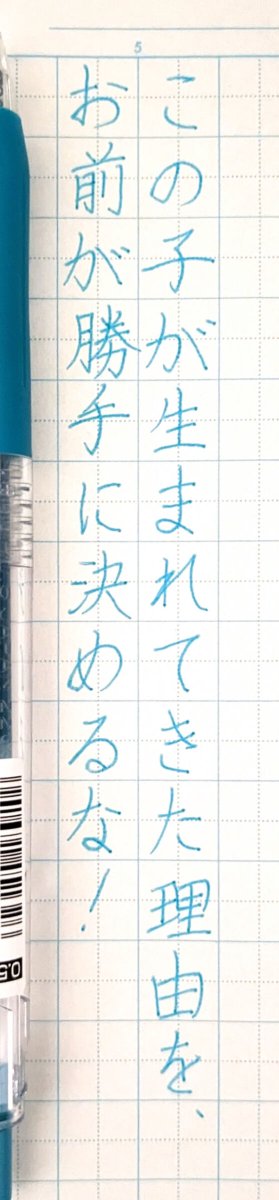 5
この子が生まれてきた理由を、
お前が勝手に決めるな！
0.5